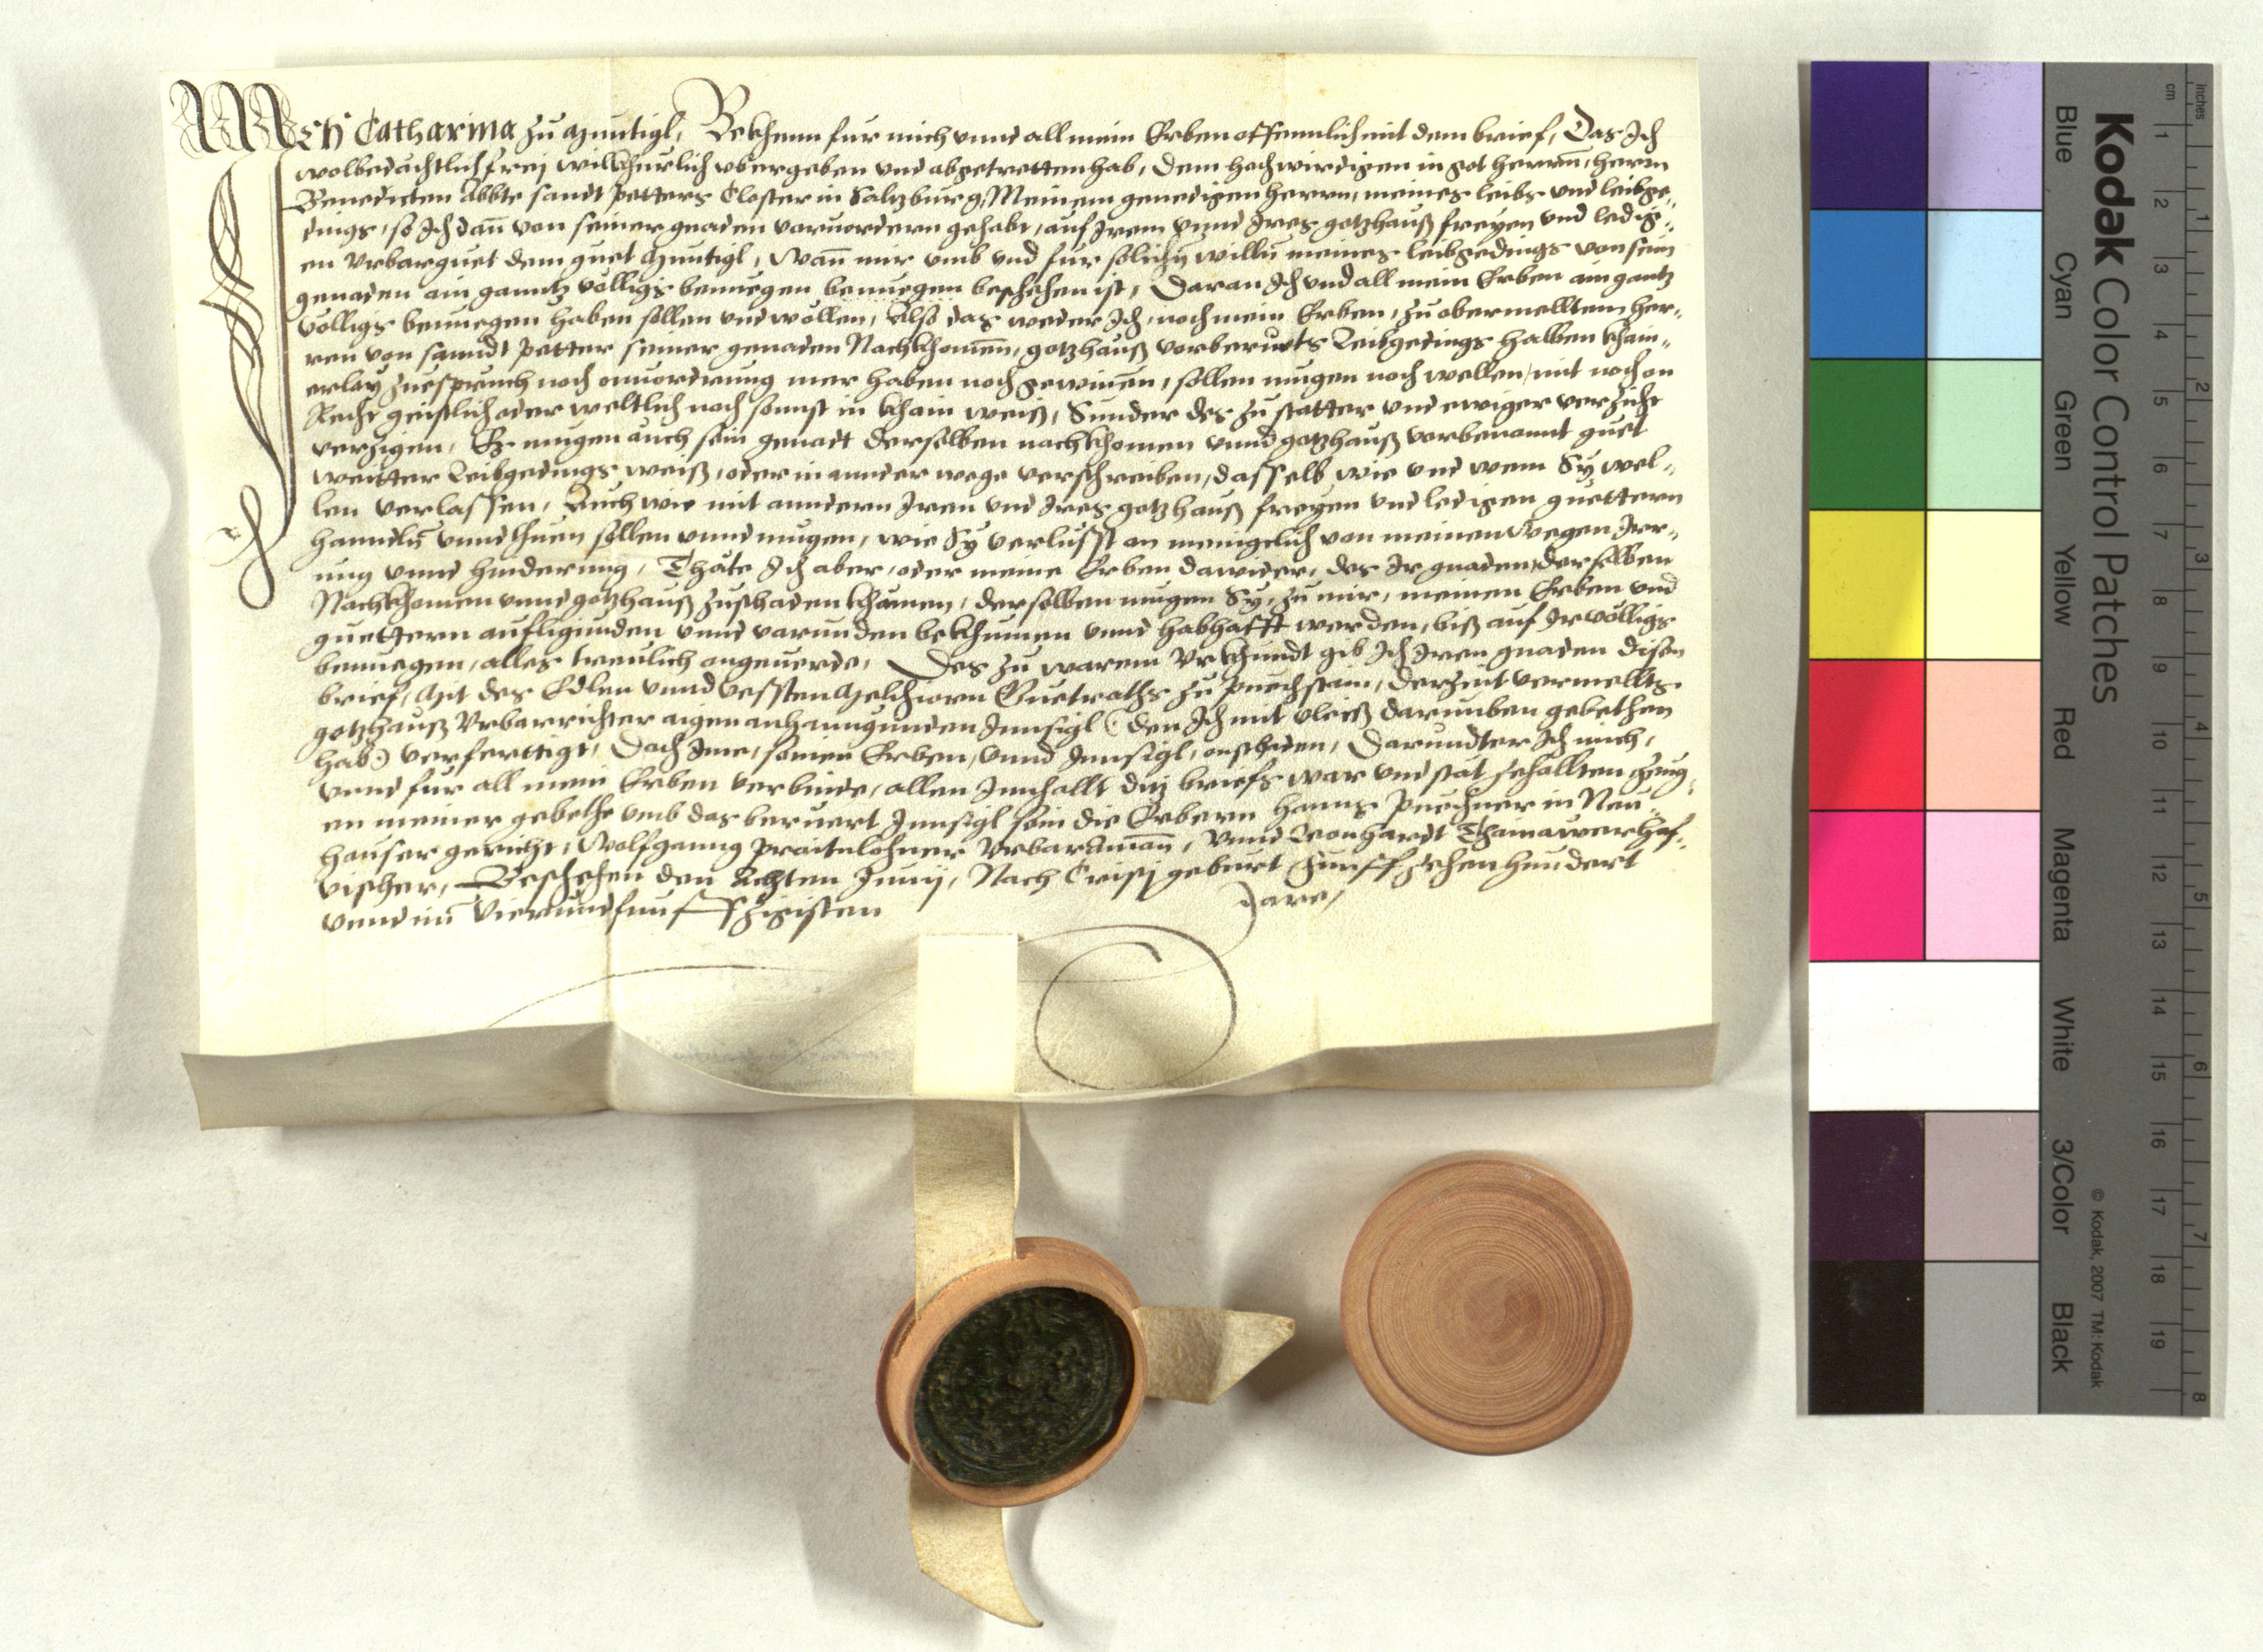 Ich Catharina zu Huntigl, Bekhenn fur mich vnnd all mein Erben offennlich mit dem brief, Das Ich
wolbedächtlich frej willkhurlich vbergeben vnd abgetretten hab, dem hochwirdigen in got herrn, herrn
Benedicten Abbte sandt Petters Closter in Saltzburg, Meinem genedigen herrn, meines leibs vnd leibge„
dings, so Ich dan̅ von seiner gnaden voruordern gehabt, auf Irem vnnd Ires gotzhauß freyen vnd ledig„
en Vrbarguet dem guet Huntigl, Wan̅ mir vmb vnd fur solichn̅ willn̅ meines leibgedings von sein
genaden ain ganntz völligs benuegen benuegen beschehen ist, Daran Ich vnd all mein Erben ain gantz
völligs benuegen haben sollen vnd wöllen, Also das weder Ich, noch mein Erben, zu obermelltem her„
ren von sanndt Petter seiner genaden Nachkhomen̅, gotzhauß vorberurts Leibgedings halben khain„
erlay zuespruch noch onuordrung mer haben noch gewinen̅, sollen mugen noch wellen, mit noch on
Recht geistlich oder weltlich noch sonnst in khain weiß, Sunder des zu statter vnd ewiger verzicht
verzigen, Es mugen auch sein genadt derselben nachkhomen vnnd gotzhauß vorbenannt guet
weitter Leibgedings weiß, oder in annder wege verschreiben, dasselb wie vnd wem Sy wel„
len verlassen, Auch wie mit anndern Iren vnd Ires gotzhauß freyen vnd ledigen guettern
hanndln̅ vnnd thuen sollen vnnd mugen, wie Sy verlusst an menigclich von meinen Wegen Irr„
ung vnnd hinderung, Thäte Ich aber, oder meine Erben dawider, des Ir gnaden, derselben
Nachkhomen vnnd gotzhauß zu schaden khämen, derselben mugen Sy, zu mir, meinen Erben vnd
guettern aufligunden vnnd varunden bekhumen vnnd habhafft werden, biß auf Ir völligs
benuegen, alles treulich ongeuerde, Des zu warem Vrkhundt gib Ich Iren gnaden disen
brief, Mit des Edlen vnnd vessten Melchiorn Guetraths zu Puechstain, derzeit vermellts
gotzhauß Vrbarrichter aigen anhanngunden Innsigl (: den Ich mit vleiß darumben gebethen
hab :) verferttigt, Doch Ime, seinen Erben, vnnd Innsigl, onschaden, Darundter Ich mich,
vnnd fur all mein Erben verbinde, allen Innhallt ditz briefs war vnd stät zehallten Zeug„
en meiner gebethe vmb das beruert Innsigl sein die Erbern hanns Puechner in Neu„
hauser gericht, Wolfganng Praitnlohner Vrbar Aman̅, Vnnd Leonhardt Thainawer Hof„
vischer, Beschehen den Achten Junij, Nach Cristj geburt Funffzehenhundert
vnnd im̅ Vierundfunffzigisten Jare,
Kodak Color Control Patches
© Kodak, 2007 TM: Kodak
Blue Cyan Green Yellow Red Magenta White 3/Color Black
inches 1 2 3 4 5 6 7 8
cm 1 2 3 4 5 6 7 8 9 10 11 12 13 14 15 16 17 18 19